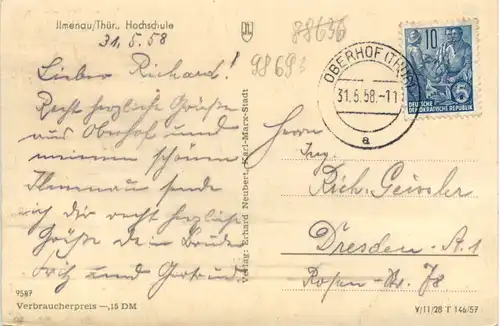 Ilmenau/Thür., Hochschule
31.5.58
Lieber Richard!
Recht herzliche Grüße
aus Oberhof und
meinem schönen
Ilmenau sende
ich dir recht herzliche
Grüße dein Bruder
Fritz und Gertrud
9587
Verbraucherpreis —,15 DM
Verlag: Erhard Neubert, Karl-Marx-Stadt
88696
98693
OBERHOF (THÜR)
31.5.58.-11
a
10
5
DEUTSCHE
DEMOKRATISCHE REPUBLIK
Herrn
Ing.
Rich. Geissler
Dresden-A.1
Rosen-Str. 78
V/11/28 T 146/57